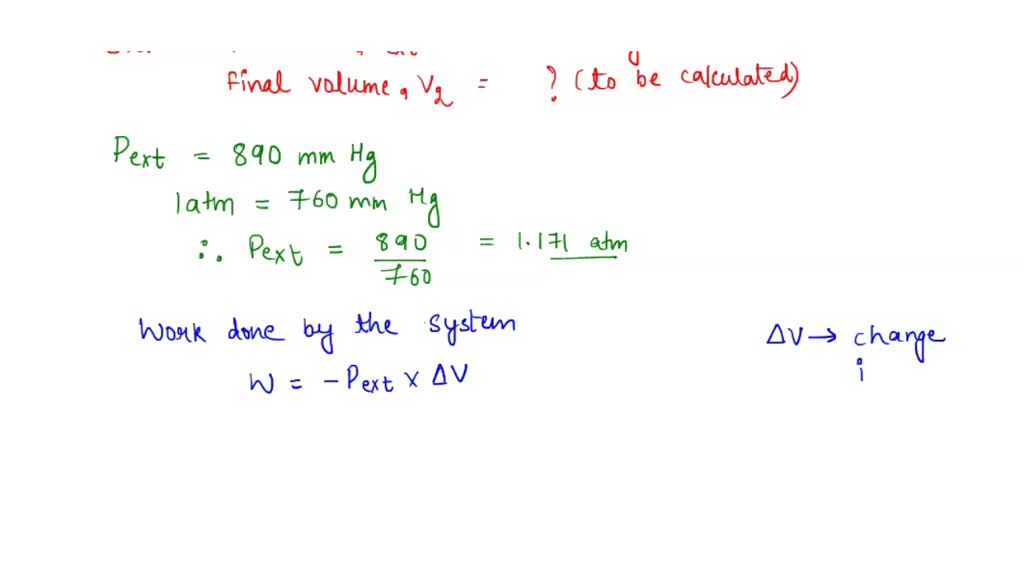 final volume, V2 = ? (to be calculated)
Pext = 890 mm Hg
1atm = 760 mm Hg
∴ Pext = 890/760 = 1.171 atm
Work done by the system
ΔV → change
i
W = -Pext × ΔV